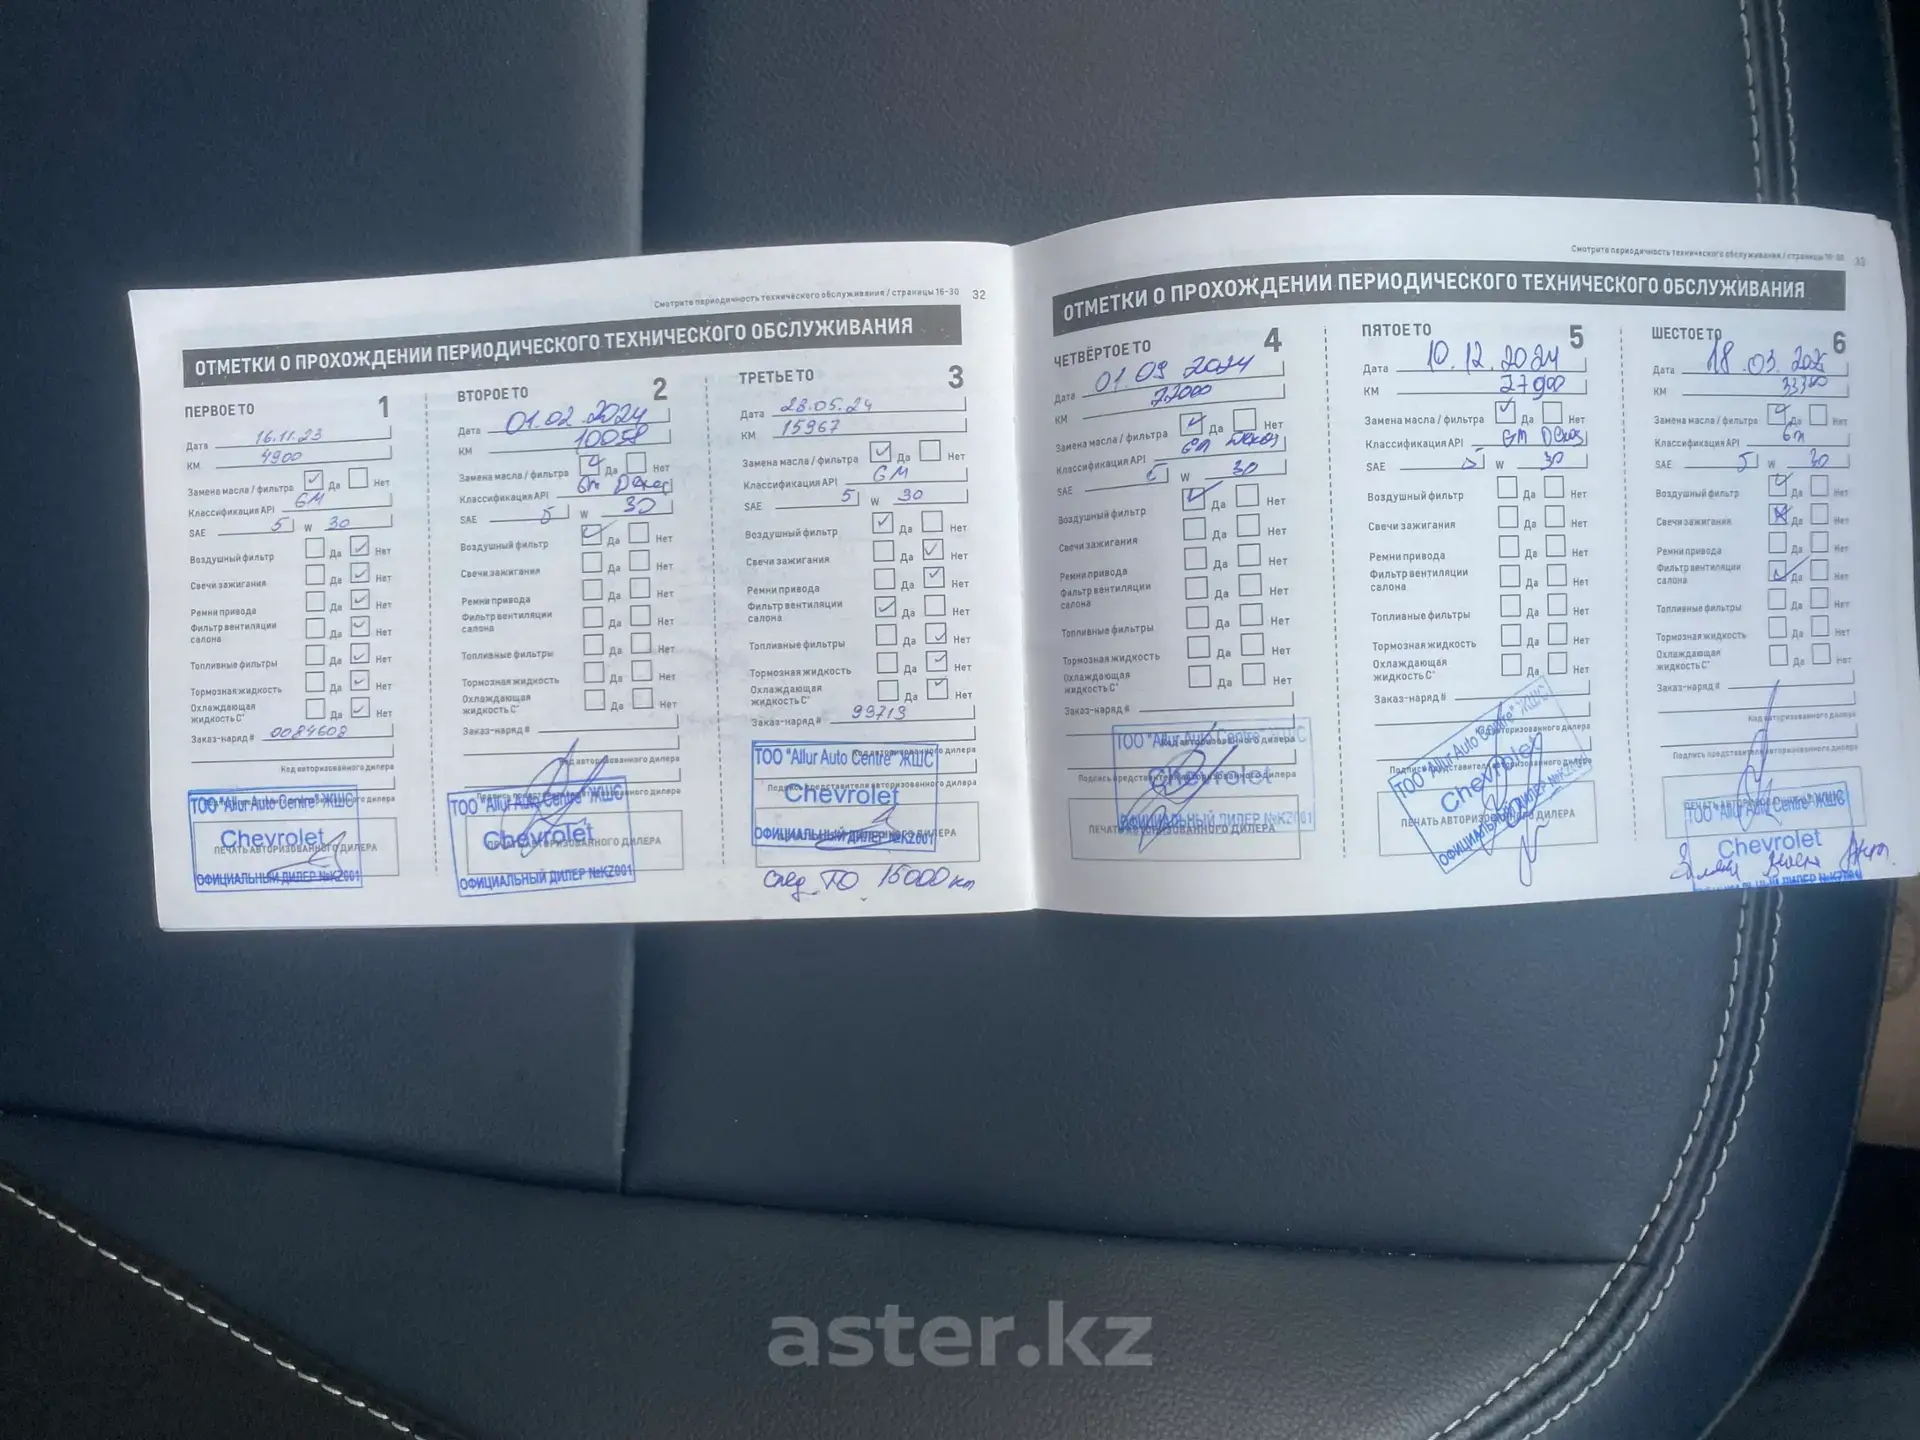 Смотрите периодичность технического обслуживания / страницы 16-30 32
ОТМЕТКИ О ПРОХОЖДЕНИИ ПЕРИОДИЧЕСКОГО ТЕХНИЧЕСКОГО ОБСЛУЖИВАНИЯ
ПЕРВОЕ ТО 1
Дата 16.11.23
КМ 4900
Замена масла / фильтра Да Нет
Классификация API GM
SAE 5 W 30
Воздушный фильтр Да Нет
Свечи зажигания Да Нет
Ремни привода Да Нет
Фильтр вентиляции
салона Да Нет
Топливные фильтры Да Нет
Тормозная жидкость Да Нет
Охлаждающая
жидкость С° Да Нет
Заказ-наряд # 0084608
Код авторизованного дилера
ТОО "Allur Auto Centre" ЖШС
Chevrolet
ПЕЧАТЬ АВТОРИЗОВАННОГО ДИЛЕРА
ОФИЦИАЛЬНЫЙ ДИЛЕР №KZ001
ВТОРОЕ ТО 2
Дата 01.02.2024
КМ 10058
Замена масла / фильтра Да Нет
Классификация API
SAE 5 W 30
Воздушный фильтр Да Нет
Свечи зажигания Да Нет
Ремни привода Да Нет
Фильтр вентиляции
салона Да Нет
Топливные фильтры Да Нет
Тормозная жидкость Да Нет
Охлаждающая
жидкость С° Да Нет
Заказ-наряд #
Код авторизованного дилера
Подпись представителя авторизованного дилера
ТОО "Allur Auto Centre" ЖШС
Chevrolet
ПЕЧАТЬ АВТОРИЗОВАННОГО ДИЛЕРА
ОФИЦИАЛЬНЫЙ ДИЛЕР №KZ001
ТРЕТЬЕ ТО 3
Дата 28.05.24
КМ 15967
Замена масла / фильтра Да Нет
Классификация API GM
SAE 5 W 30
Воздушный фильтр Да Нет
Свечи зажигания Да Нет
Ремни привода Да Нет
Фильтр вентиляции
салона Да Нет
Топливные фильтры Да Нет
Тормозная жидкость Да Нет
Охлаждающая
жидкость С° Да Нет
Заказ-наряд # 99713
Код авторизованного дилера
ТОО "Allur Auto Centre" ЖШС
Подпись представителя авторизованного дилера
Chevrolet
ПЕЧАТЬ АВТОРИЗОВАННОГО ДИЛЕРА
ОФИЦИАЛЬНЫЙ ДИЛЕР №KZ001
след. ТО 15000 км
Смотрите периодичность технического обслуживания / страницы 16-30 33
ОТМЕТКИ О ПРОХОЖДЕНИИ ПЕРИОДИЧЕСКОГО ТЕХНИЧЕСКОГО ОБСЛУЖИВАНИЯ
ЧЕТВЁРТОЕ ТО 4
Дата 01.09.2024
КМ 22000
Замена масла / фильтра Да Нет
Классификация API
SAE 5 W 30
Воздушный фильтр Да Нет
Свечи зажигания Да Нет
Ремни привода Да Нет
Фильтр вентиляции
салона Да Нет
Топливные фильтры Да Нет
Тормозная жидкость Да Нет
Охлаждающая
жидкость С° Да Нет
Заказ-наряд #
ТОО "Allur Auto Centre" ЖШС
Код авторизованного дилера
Подпись представителя авторизованного дилера
Chevrolet
ОФИЦИАЛЬНЫЙ ДИЛЕР №KZ001
ПЕЧАТЬ АВТОРИЗОВАННОГО ДИЛЕРА
ПЯТОЕ ТО 5
Дата 10.12.2024
КМ 27900
Замена масла / фильтра Да Нет
Классификация API GM Dexos
SAE 5 W 30
Воздушный фильтр Да Нет
Свечи зажигания Да Нет
Ремни привода Да Нет
Фильтр вентиляции
салона Да Нет
Топливные фильтры Да Нет
Тормозная жидкость Да Нет
Охлаждающая
жидкость С° Да Нет
Заказ-наряд #
Код авторизованного дилера
Подпись представителя авторизованного дилера
ТОО "Allur Auto Centre" ЖШС
Chevrolet
ПЕЧАТЬ АВТОРИЗОВАННОГО ДИЛЕРА
ОФИЦИАЛЬНЫЙ ДИЛЕР №KZ001
ШЕСТОЕ ТО 6
Дата 18.03.2025
КМ 33300
Замена масла / фильтра Да Нет
Классификация API
SAE 5 W 30
Воздушный фильтр Да Нет
Свечи зажигания Да Нет
Ремни привода Да Нет
Фильтр вентиляции
салона Да Нет
Топливные фильтры Да Нет
Тормозная жидкость Да Нет
Охлаждающая
жидкость С° Да Нет
Заказ-наряд #
Код авторизованного дилера
Подпись представителя авторизованного дилера
ПЕЧАТЬ АВТОРИЗОВАННОГО ДИЛЕРА
ТОО "Allur Auto Centre" ЖШС
Chevrolet
ОФИЦИАЛЬНЫЙ ДИЛЕР №KZ001
aster.kz